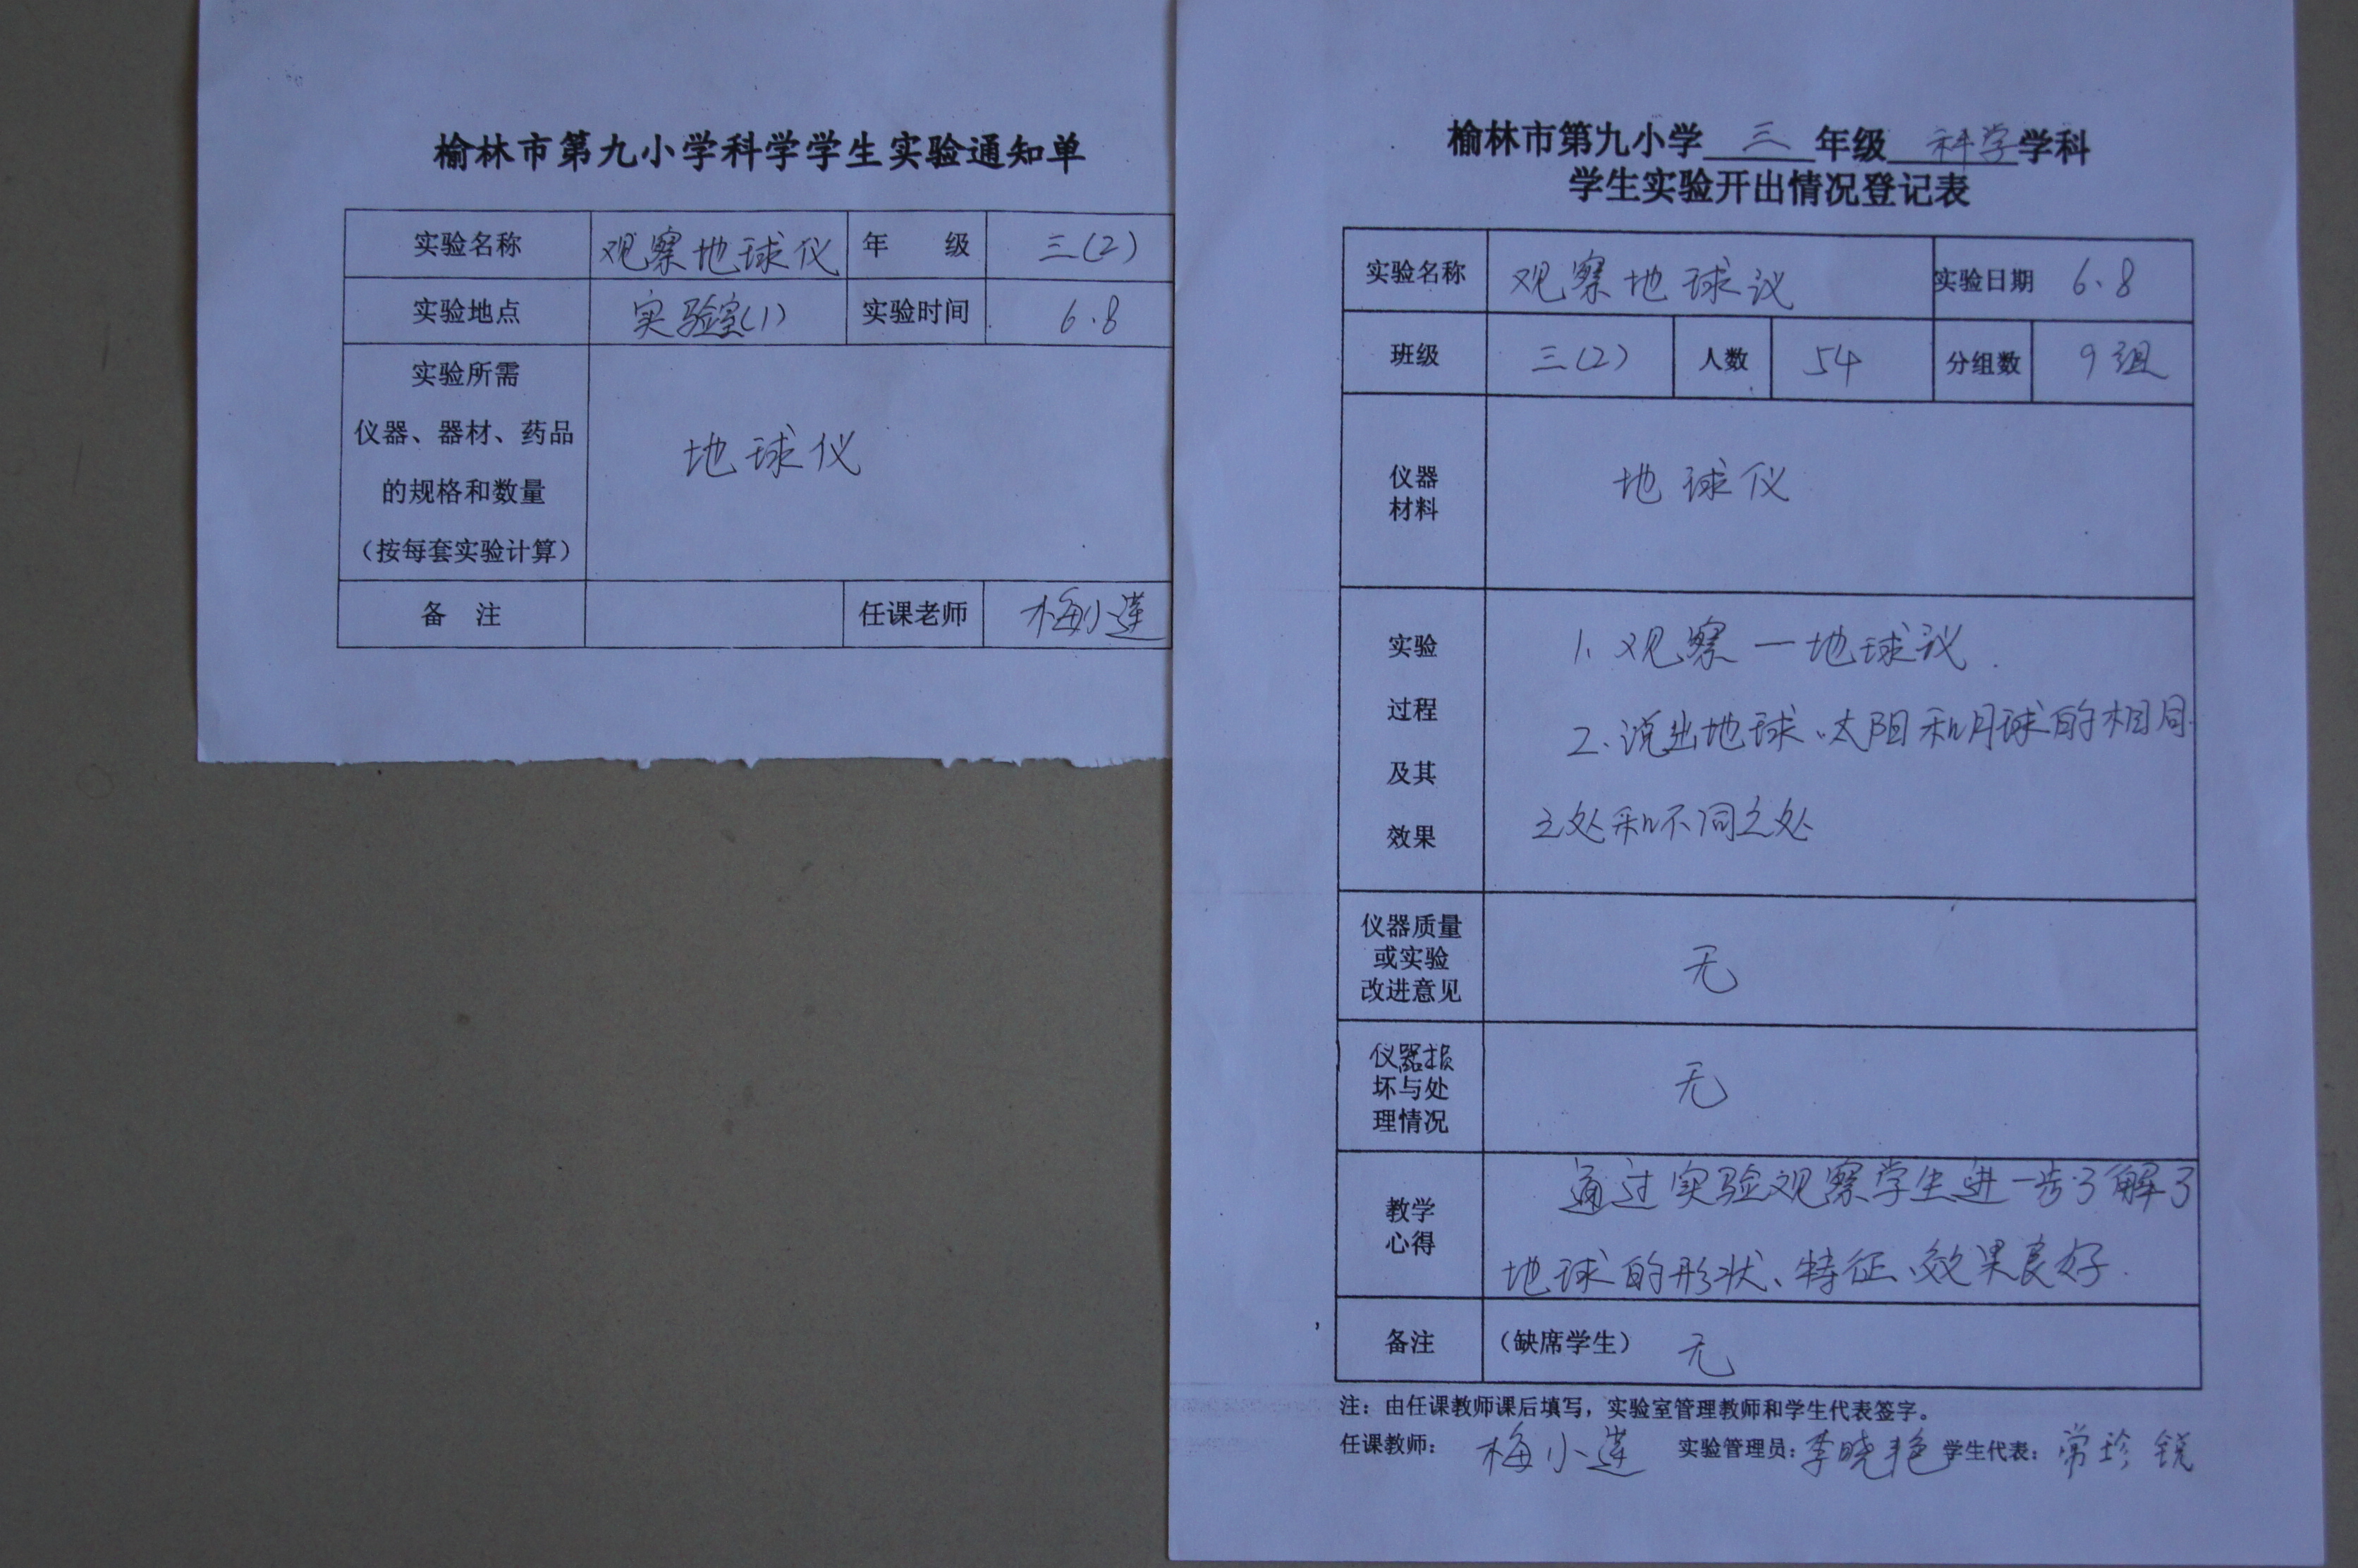 榆林市第九小学科学学生实验通知单
实验名称 观察地球仪 年 级 三(2)
实验地点 实验室(1) 实验时间 6.8
实验所需
仪器、器材、药品
的规格和数量
（按每套实验计算）
地球仪
备 注 任课老师 梅小莲
榆林市第九小学 三 年级 科学 学科
学生实验开出情况登记表
实验名称 观察地球议 实验日期 6.8
班级 三(2) 人数 54 分组数 9组
仪器
材料
地球仪
实验
过程
及其
效果
1、观察一地球议.
2、说出地球、太阳和月球的相同
之处和不同之处
仪器质量
或实验
改进意见
无
仪器损
坏与处
理情况
无
教学
心得
通过实验观察学生进一步了解了
地球的形状、特征、效果良好.
备注 （缺席学生） 无
注：由任课教师课后填写，实验室管理教师和学生代表签字。
任课教师： 梅小莲 实验管理员：李晓艳 学生代表：常珍锐